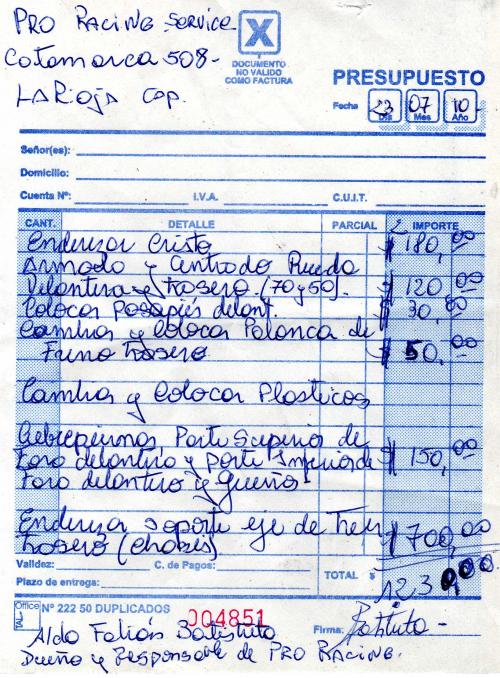 PRO RACING SERVICE
Catamarca 508-
LA Rioja Cap.
X
DOCUMENTO
NO VALIDO
COMO FACTURA
PRESUPUESTO
Fecha 23 07 10-
Día Mes Año
Señor(es):
Domicilio:
Cuenta Nº: I.V.A. C.U.I.T.
CANT. DETALLE PARCIAL IMPORTE
Enderezar Cristo $ 180,00
Armado y Centrado Rueda
Delantera y trasera (70 y 50). $ 120,00
Colocar Posapiés delant. $ 30,00
Cambiar y Colocar Palanca de
Freno trasero $ 50,00
Cambiar y Colocar Plasticos
Parte Superior de
Faro delantero y parte Inferior de $ 150,00
Faro delantero y
Enderezar soporte eje de Tren $ 700,00
trasero (Chasis)
Validez: C. de Pagos:
Plazo de entrega: TOTAL $ 1230,00.
Office TAL Nº 222 50 DUPLICADOS 004851
Aldo Fabián Batistuto Firma:
Dueño y Responsable de PRO RACING.